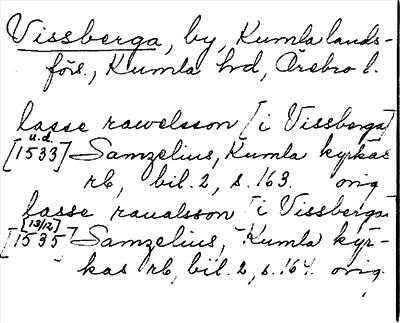 Vissberga, by, Kumla lands-
förs., Kumla hd, Örebro l.
lasse rawelsson [i Vissberga]
u.d.
[1533] Samzelius, Kumla kyrkas
rb, bil. 2, s. 163. orig.
lasse raualsson [i Vissberga]
[13/12]
[1535] Samzelius, Kumla kyr-
kas rb, bil. 2, s. 164. orig.